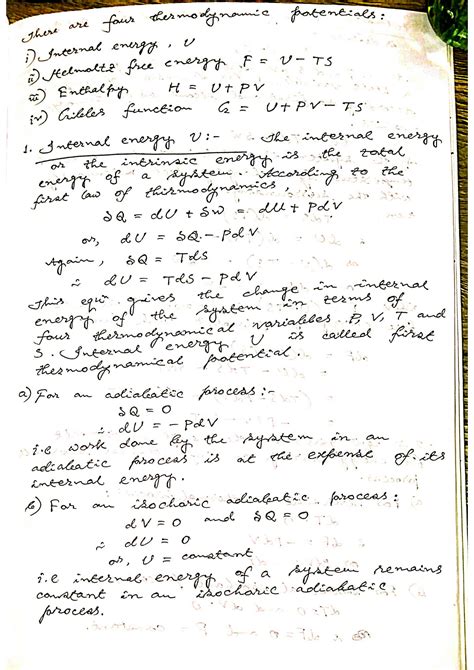 There are four thermodynamic potentials:
i) Internal energy, U
ii) Helmoltz free energy F = U - TS
iii) Enthalpy H = U + PV
iv) Gibbs function G = U + PV - TS
1. Internal energy U :- The internal energy
or the intrinsic energy is the total
energy of a system. According to the
first law of thermodynamics,
δQ = dU + δw = dU + PdV
or, dU = δQ - PdV
Again, δQ = TdS
∴ dU = TdS - PdV
This equⁿ gives the change in internal
energy of the system in terms of
four thermodynamical variables P, V, T and
S. Internal energy U is called first
thermodynamical potential.
a) For an adiabatic process :-
δQ = 0
∴ dU = - PdV
i.e work done by the system in an
adiabatic process is at the expense of its
internal energy.
b) For an isochoric adiabatic process :
dV = 0 and δQ = 0
∴ dU = 0
or, U = constant
i.e internal energy of a system remains
constant in an isochoric adiabatic
process.